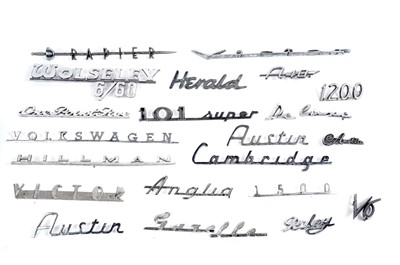 RAPIER Victor
WOLSELEY
6/60
Herald
1200
101 super De Luxe
VOLKSWAGEN
Austin
HILLMAN
Cambridge
VICTOR
Anglia
1500
V6
Austin
Gazelle